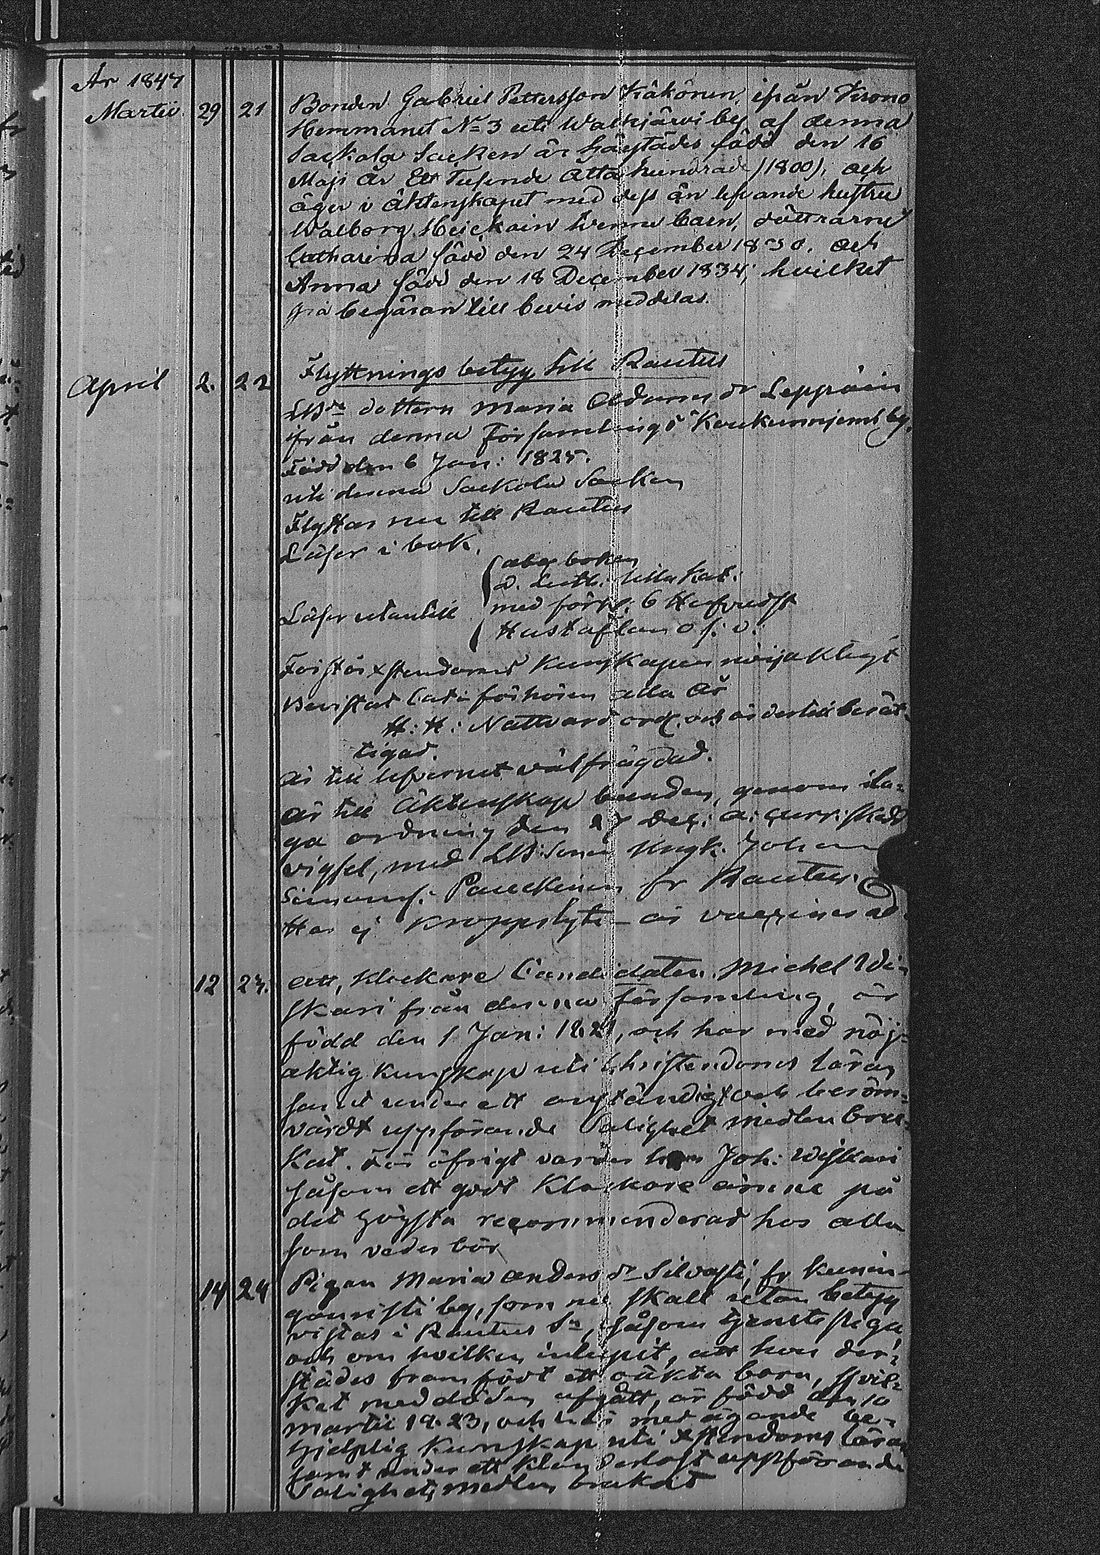 År 1847
Martii 29 21 Bonden Gabriel Pettersson Käkönen, ifrån Krono
Hemmanet No 3 uti Walkjärvi by af denna
Sackola Socken är härstädes född den 16
Maji år Ett Tusende åtta hundrade (1800), och
äger i äktenskapet med dess än lefvande hustru
Walborg Heickain tvenne barn, döttrarne
Catharina född den 24 December 1830. och
Anna född den 18 December 1834; hvilket
på begäran till bevis meddelas.
April 2. 22 Flyttnings betyg till Rautus
LBde dottern Maria Adams dr Leppäin
från denna Församlings by.
Född den 6 Jan: 1825.
uti denna Sackola Socken
Flyttar nu till Rautus
Läser i bok.
abc boken
D. Luth. lilla Kat:
Läser utantill med förkl. 6 Hufvudst
Hustaflan o. s. v.
Förstår Xstendoms Kunskapen nöjaktigt
Bevistat Cat: förhören alla år
H: H: Nattvard ord. och är dertill berät-
tigad.
är till lefvernet välfrägdad.
är till Äktenskap bunden, genom la-
ga ordning den 27 Dec: a: curr: skedd
vigsel, med LB: Sonen Ungk. Johan
Simonss: Pauckinen fr Rautus.
Har ej Kroppslyte är vaccinerad.
12 23. att, Klockare Candidaten Michel Wi-
skari från denna Församling, är
född den 1 Jan: 1821, och har med nöj-
aktig kunskap uti Christendoms läran
samt under ett anständigt och beröm-
värdt uppförande Salighets medlen bru-
kat. För öfrigt varder Joh: Wiskari
såsom ett godt Klockare ämne på
det högsta recommenderad hos alla
som vederbör
14 24 Pigan Maria Anders dr Silvasti, fr Kunin-
gannisti by, som nu skall utan betyg
vistas i Rautus Sn, såsom tjenste piga
och om hvilken inlupit, att hon der-
städes framfödt ett oäkta barn, hvil-
ket med döden afgått, är född den 10
Martii 1823, och har med ägande be-
hjelplig Kunskap uti Xstendoms läran
samt under ett klanderlöst uppförande
Salighets medlen brukat